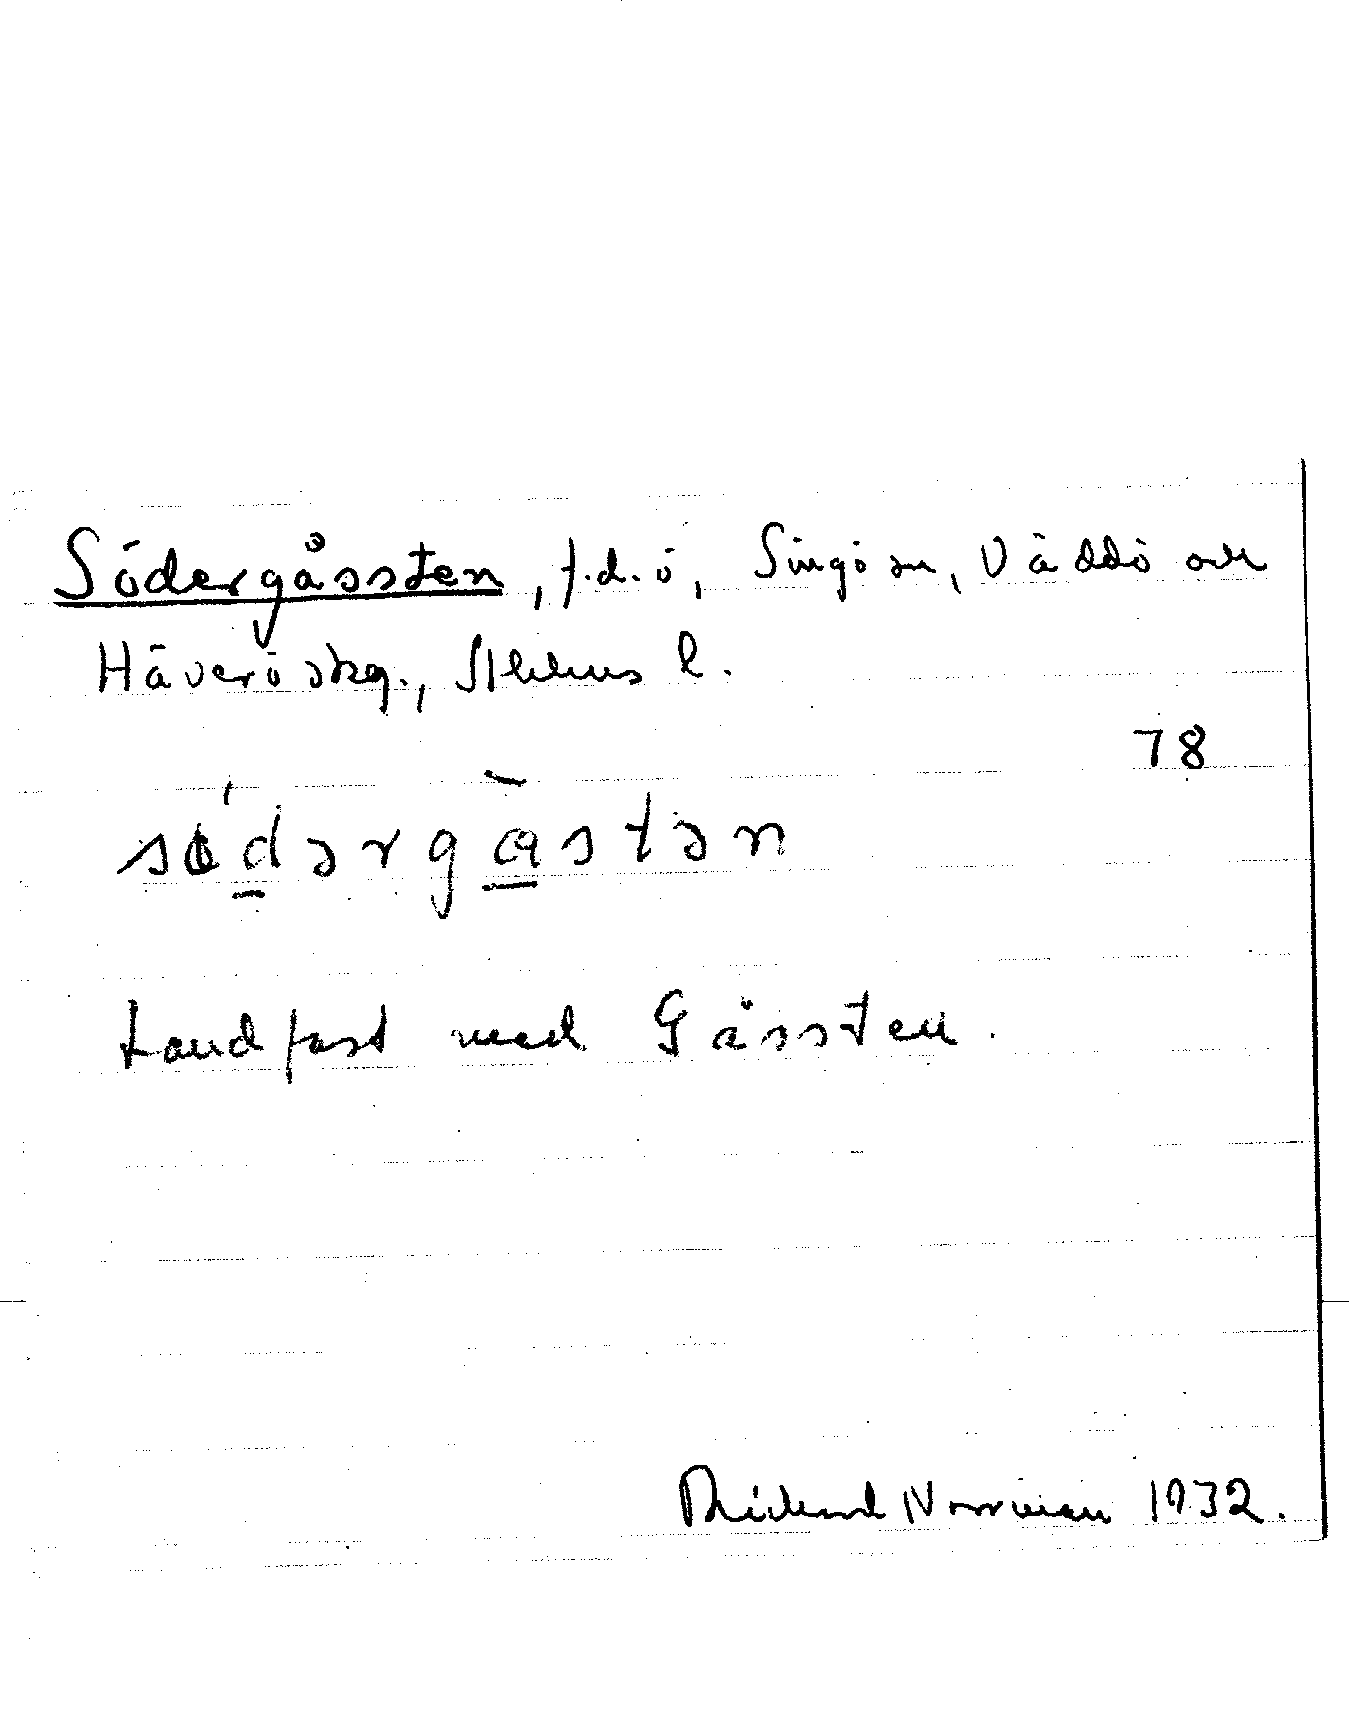 Södergåssten, f.d. ö, Singö sn, Väddö och
Häverö skg., Sthlms l.
78
södərgåstən
Landfast med Gåssten.
Rickard Norrman 1932.